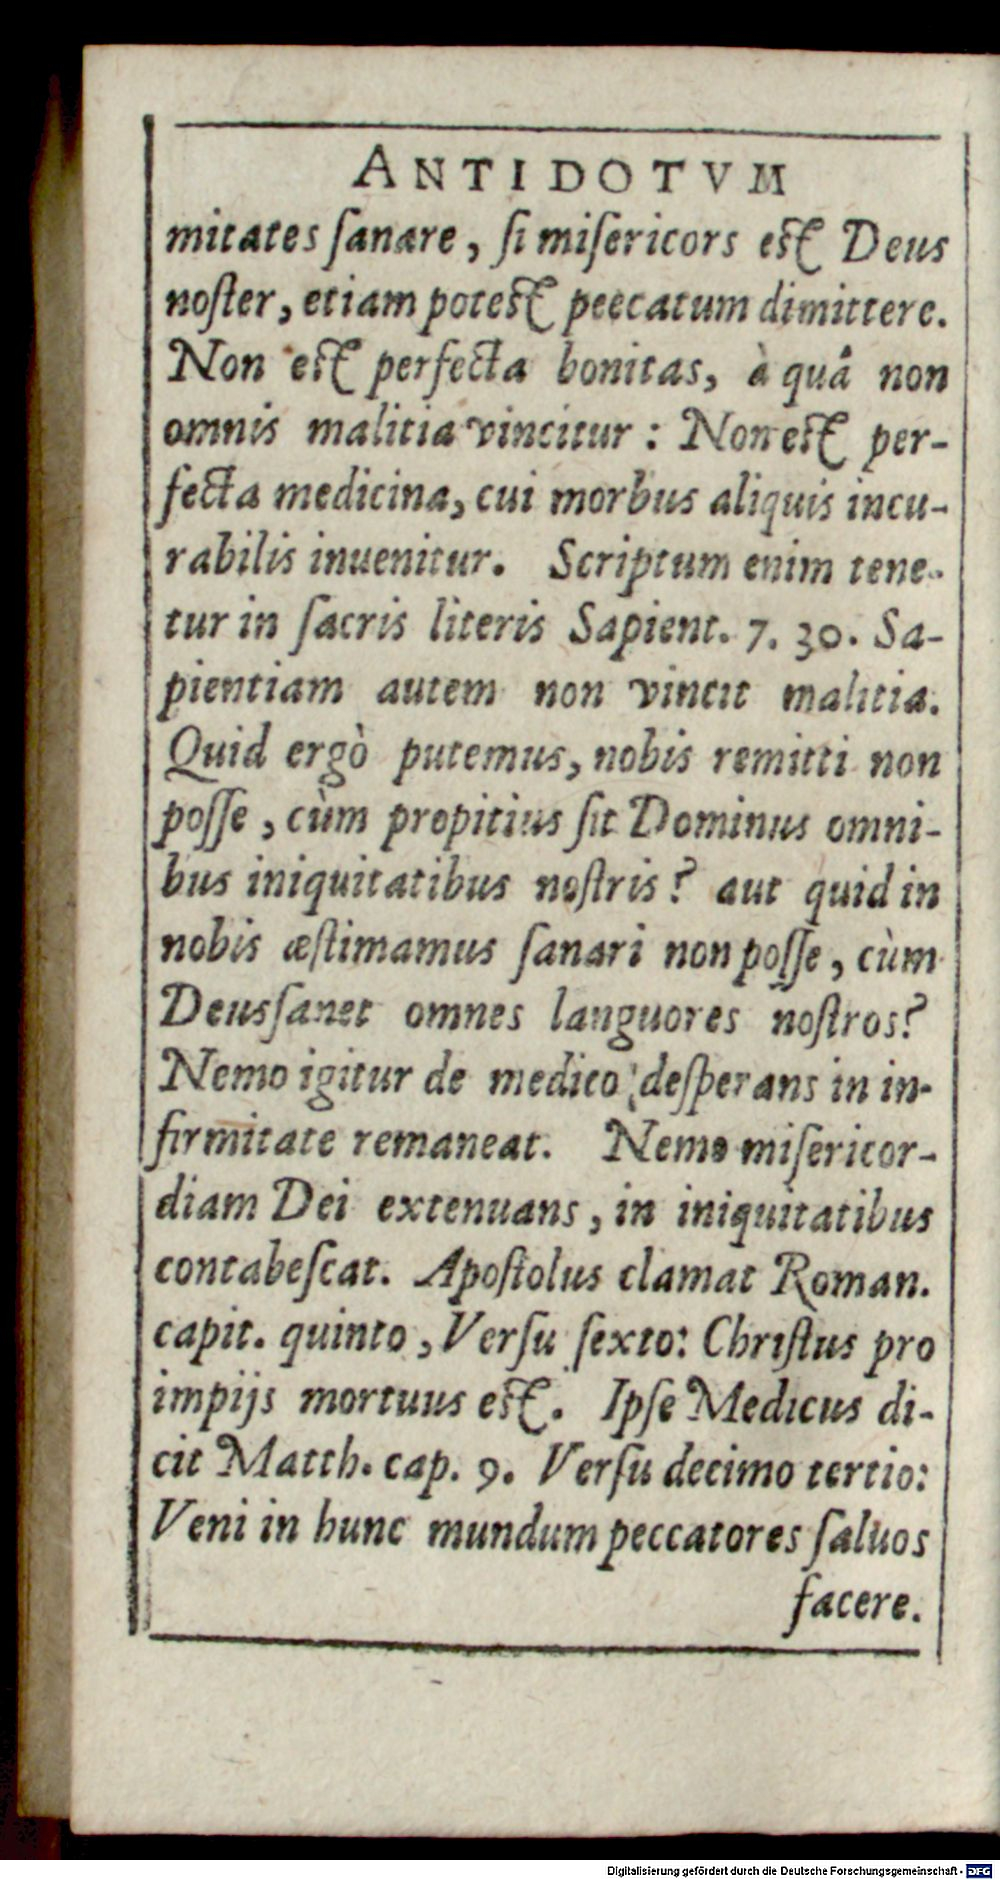 ANTIDOTVM
mitates ſanare, ſi miſericors eſt Deus
noſter, etiam poteſt peecatum dimittere.
Non eſt perfecta bonitas, à quâ non
omnis malitia vincitur : Non eſt per-
fecta medicina, cui morbus aliquis incu-
rabilis inuenitur. Scriptum enim tene-
tur in ſacris literis Sapient. 7. 30. Sa-
pientiam autem non vincit malitia.
Quid ergò putemus, nobis remitti non
poſſe, cùm propitius ſit Dominus omni-
bus iniquitatibus noſtris? aut quid in
nobis æſtimamus ſanari non poſſe, cùm
Deus ſanet omnes languores noſtros?
Nemo igitur de medico deſperans in in-
firmitate remaneat. Nemo miſericor-
diam Dei extenuans, in iniquitatibus
contabeſcat. Apoſtolus clamat Roman.
capit. quinto, Verſu ſexto: Chriſtus pro
impijs mortuus eſt. Ipſe Medicus di-
cit Matth. cap. 9. Verſu decimo tertio:
Veni in hunc mundum peccatores ſaluos
facere.
Digitalisierung gefördert durch die Deutsche Forschungsgemeinschaft - DFG